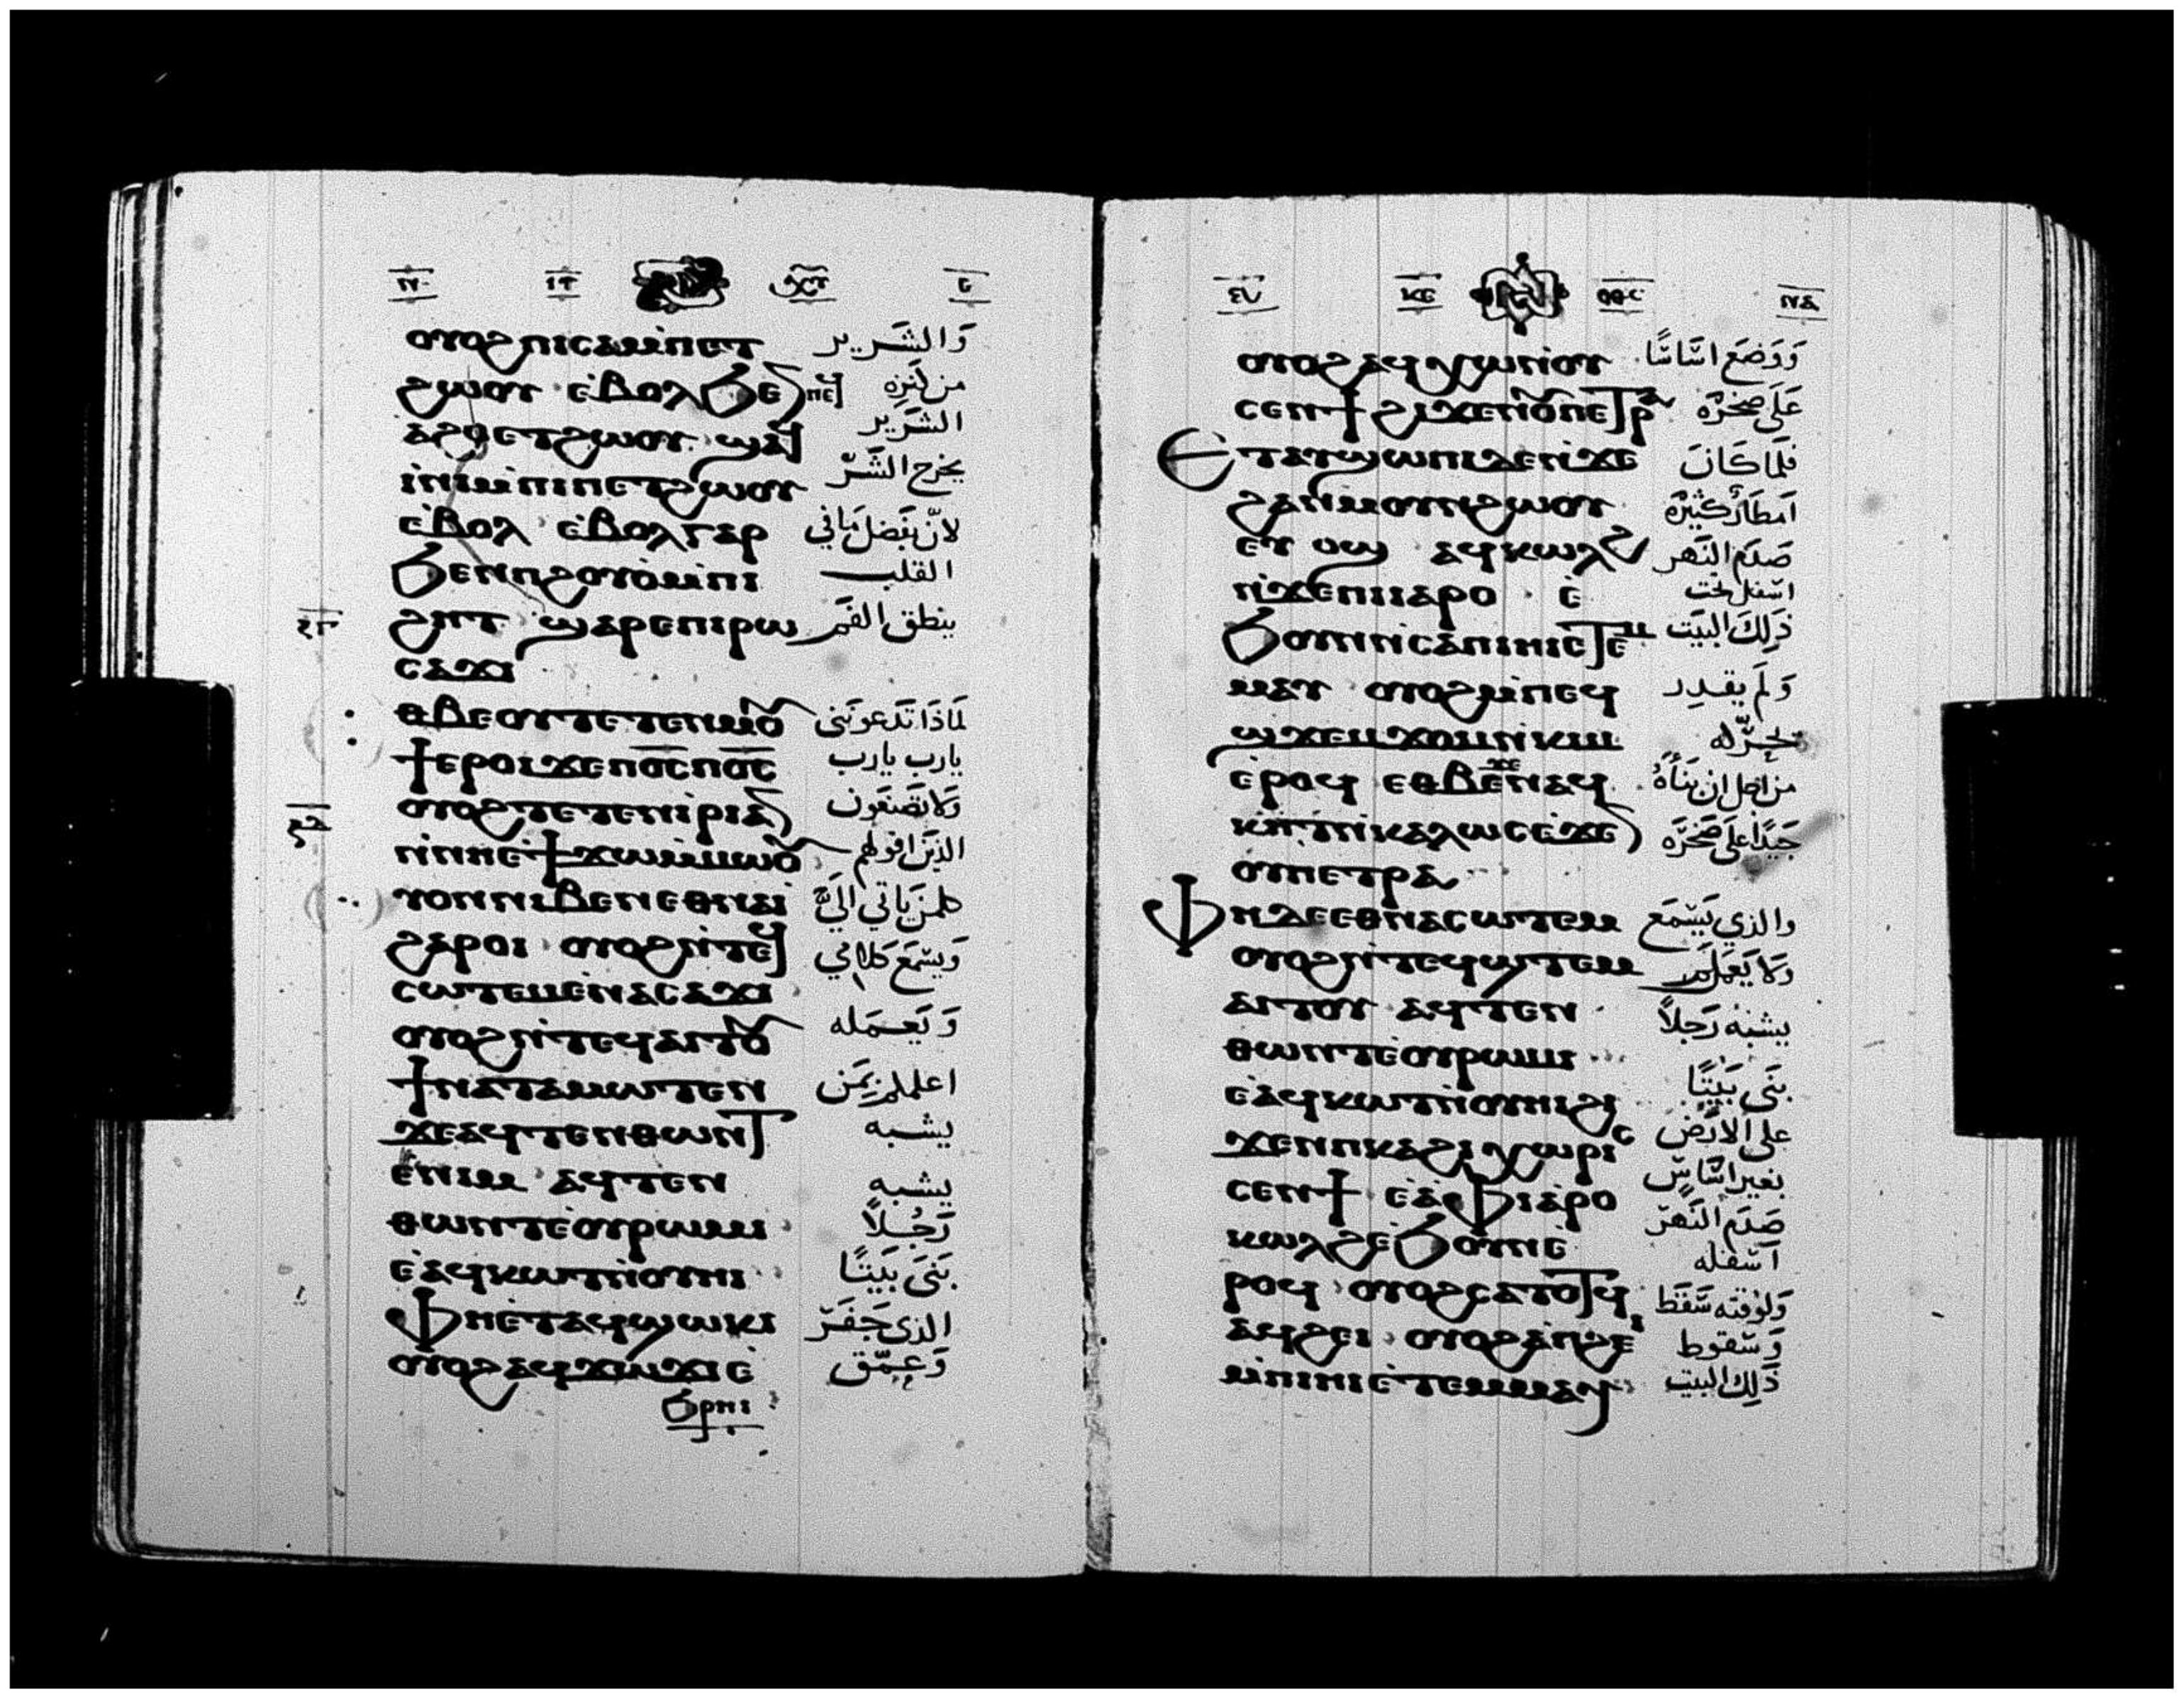 ⲟⲩⲟϩ ⲡⲓⲥⲁⲙ̀ⲡⲉⲧ وَالشَرير
ϩⲱⲟⲩ ⲉ̀ⲃⲟⲗϧⲉⲛⲡⲉϥ من كنزه
ⲁϩⲟⲉⲧϩⲱⲟⲩ ϣⲁϥ الشَرير
ⲓ̀ⲛⲓⲙ̀ⲡⲓⲡⲉⲧϩⲱⲟⲩ يخرج الشَرّ
ⲉ̀ⲃⲟⲗ ⲉ̀ⲃⲟⲗⲅⲁⲣ لانّ بفَضل مَا في
ϧⲉⲛⲡϩⲟⲩⲟ̀ⲙ̀ⲡⲓ القلب
ϩⲏⲧ ϣⲁⲣⲉⲡⲓⲣⲱ ينطق الفَم
ⲥⲁϫⲓ
ⲑⲃⲉⲟⲩⲧⲉⲧⲉⲛⲙⲟⲩ لمَاذَا تَدعونَني
ϯⲉⲣⲟⲓϫⲉⲡⲟ̅ⲥ̅ⲡⲟ̅ⲥ̅ يارب يارب
ⲟⲩⲟϩⲧⲉⲧⲉⲛⲓ̀ⲣⲓⲁⲛ وَلا تصَنعَون
ⲛ̀ⲛⲏⲉ̀ϯϫⲱⲙ̀ⲙⲱⲟⲩ الذين اقولهم
ⲩⲟⲛⲛⲓⲃⲉⲛⲉⲑⲛⲁⲓ̀ كلمن يَاتي اليَّ
ϩⲁⲣⲟⲓ ⲟⲩⲟϩⲛ̀ⲧⲉϥ وَيسمَع كلامي
ⲥⲱⲧⲉⲙⲉ̀ⲛⲁⲥⲁϫⲓ
ⲟⲩⲟϩⲛ̀ⲧⲉϥⲁⲓⲧⲟⲩ وَيَعمَله
ϯⲛⲁⲧⲁⲙⲱⲧⲉⲛ اعلمكم بمَن
ϫⲉⲁϥⲧⲉⲛⲑⲱⲛⲧ يشبه
ⲉ̀ⲛⲓⲙ ⲁϥⲧⲉⲛ يشبه
ⲑⲱⲛⲧⲉ̀ⲟⲩⲣⲱⲙⲓ رَجُلاً
ⲉ̀ⲁϥⲕⲱⲧⲛ̀ⲟⲩⲏⲓ بَنَى بَيتًا
ⲫⲏⲉ̀ⲧⲁϥϣⲱⲕⲓ الذي حَفَر
ⲟⲩⲟϩⲁϥϫⲓⲙϫⲓⲉ̀ وَعمّق
ϧⲣⲏⲓ
ⲟⲩⲟϩⲁϥⲭⲱⲛ̀ⲟⲩ وَوَضعَ اسَّاسًا
ⲥⲉⲛϯϩⲓϫⲉⲛⲟⲩⲡⲉⲧⲣⲁ عَلى صَخرَه
ⲉⲧⲁⲩϣⲱⲡⲓⲇⲉⲛ̀ϫⲉ فلمَا كَانَ
ϩⲁⲛⲙⲟⲩⲛϩⲱⲟⲩ امطَارٌ كثيرَه
ⲉⲩⲟϣ ⲁϥⲕⲱⲗϩ صَدَم النَهر
ⲛ̀ϫⲉⲡⲓⲓⲁⲣⲟ ⲉ̀ اسفل تحت
ϧⲟⲩⲛⲛ̀ⲥⲁⲡⲓⲏⲓⲉⲧⲉⲙ ذلكَ البيَت
ⲙⲁⲩ ⲟⲩⲟϩⲙ̀ⲡⲉϥ وَلَم يقدر
ϣϫⲉⲙϫⲟⲙⲛ̀ⲕⲓⲙ يحَرّكه
ⲉ̀ⲣⲟϥ ⲉⲑⲃⲉϫⲉⲛⲁϥ من اجل ان بَنَاهُ
ⲕⲏⲧⲛ̀ⲕⲁⲗⲱⲥⲉ̀ϫⲉⲛ جَيدًا عَلى صَخرَه
ⲟⲩⲡⲉⲧⲣⲁ
ⲫⲏⲇⲉⲉⲑⲛⲁⲥⲱⲧⲉⲙ والذي يَسّمَع
ⲟⲩⲟϩⲛ̀ⲧⲉϥϣⲧⲉⲙ وَلا يَعمَل
ⲁⲓⲧⲟⲩ ⲁϥⲧⲉⲛ يشبهُ رَجلاً
ⲑⲱⲛⲧⲉ̀ⲟⲩⲣⲱⲙⲓ
ⲉ̀ⲁϥⲕⲱⲧⲛ̀ⲟⲩⲏⲓϩⲓ بنَى بَيتًا
ϫⲉⲛⲡⲕⲁϩⲓⲭⲱⲣⲓⲥ على الارضَ
ⲥⲉⲛϯ ⲉ̀ⲁⲫⲓⲁⲣⲟ بغير اسَّاسٍّ
ⲕⲱⲗϩⲉ̀ϧⲟⲩⲛⲉ̀ صَدَم النَهرّ
ⲣⲟϥ ⲟⲩⲟϩⲥⲁⲧⲟⲧϥ اسّفله
ⲁϥϩⲉⲓ ⲟⲩⲟϩⲁⲡϩⲉⲓ وَلوَقته سَقَط وَسّقوط
ⲙ̀ⲡⲓⲏⲓⲉ̀ⲧⲉⲙⲙⲁⲩ ذَلِكَ البيت